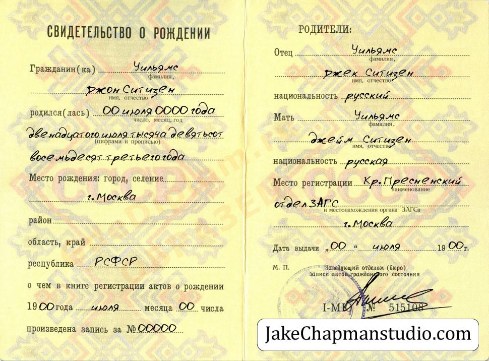 СВИДЕТЕЛЬСТВО О РОЖДЕНИИ
Гражданин(ка) Уильямс
фамилия,
джон Ситизен
имя, отчество
родился(лась) 00 июля 0000 года
число, месяц, год
двенадцатого июля тысяча девятьсот
(цифрами и прописью)
восемьдесят третьего года
Место рождения: город, селение
г. Москва
район
область, край
республика РСФСР
о чем в книге регистрации актов о рождении
1900 года июля месяца 00 числа
произведена запись за № 00000
РОДИТЕЛИ:
Отец Уильямс
фамилия,
джек Ситизен
имя, отчество
национальность русский
Мать Уильямс
фамилия,
джейм Ситизен
имя, отчество
национальность русская
Место регистрации Кр. Пресненский
наименование
отдел ЗАГС
и местонахождение органа ЗАГСа
г. Москва
Дата выдачи «00» июля 1900г.
М. П. Заведующий отделом (бюро)
записи актов гражданского состояния
№ 515108
JakeChapmanstudio.com